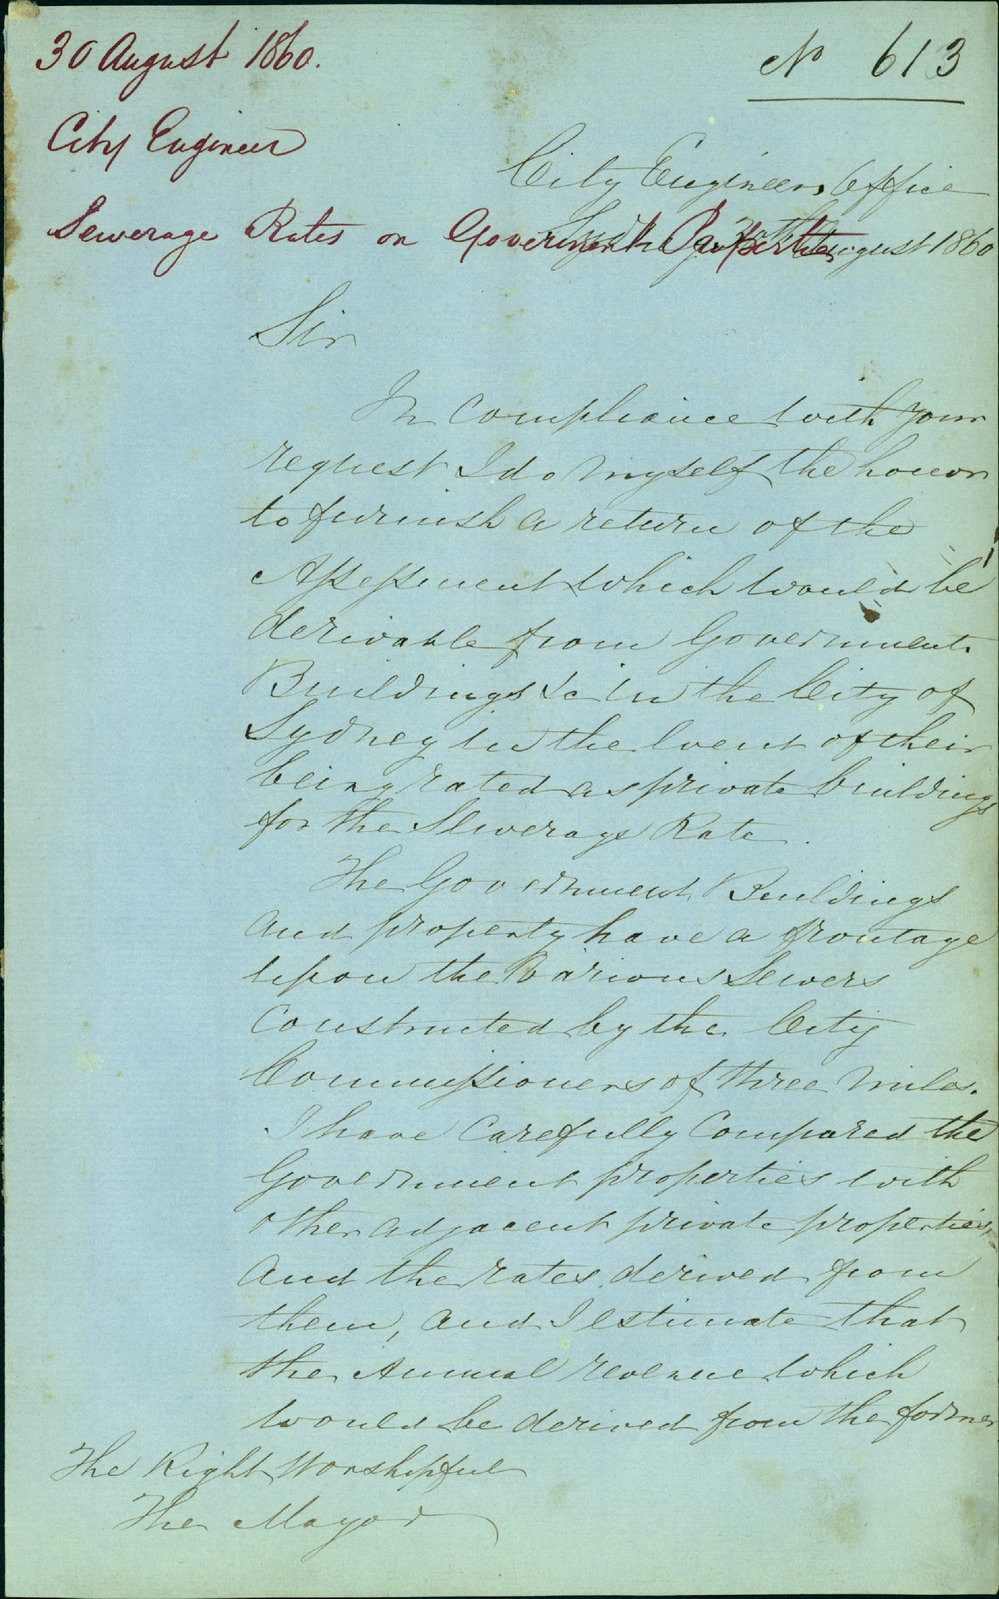 30 August 1860.
No 613
City Engineer
City Engineers Office
Sewerage Rates on Government Properties
Sydney August 1860
Sir
In compliance with your
request I do myself the honor
to furnish a return of the
Assessment which would be
derivable from Government
Buildings &c in the City of
Sydney in the event of their
being rated as private buildings
for the Sewerage Rate.
The Government Buildings
and property have a frontage
upon the various Sewers
Constructed by the City
Commissioners of three miles.
I have Carefully Compared the
Government properties with
other adjacent private properties,
and the rates derived from
them, and I estimate that
the Annual revenue which
would be derived from the former
The Right Worshipful
The Mayor